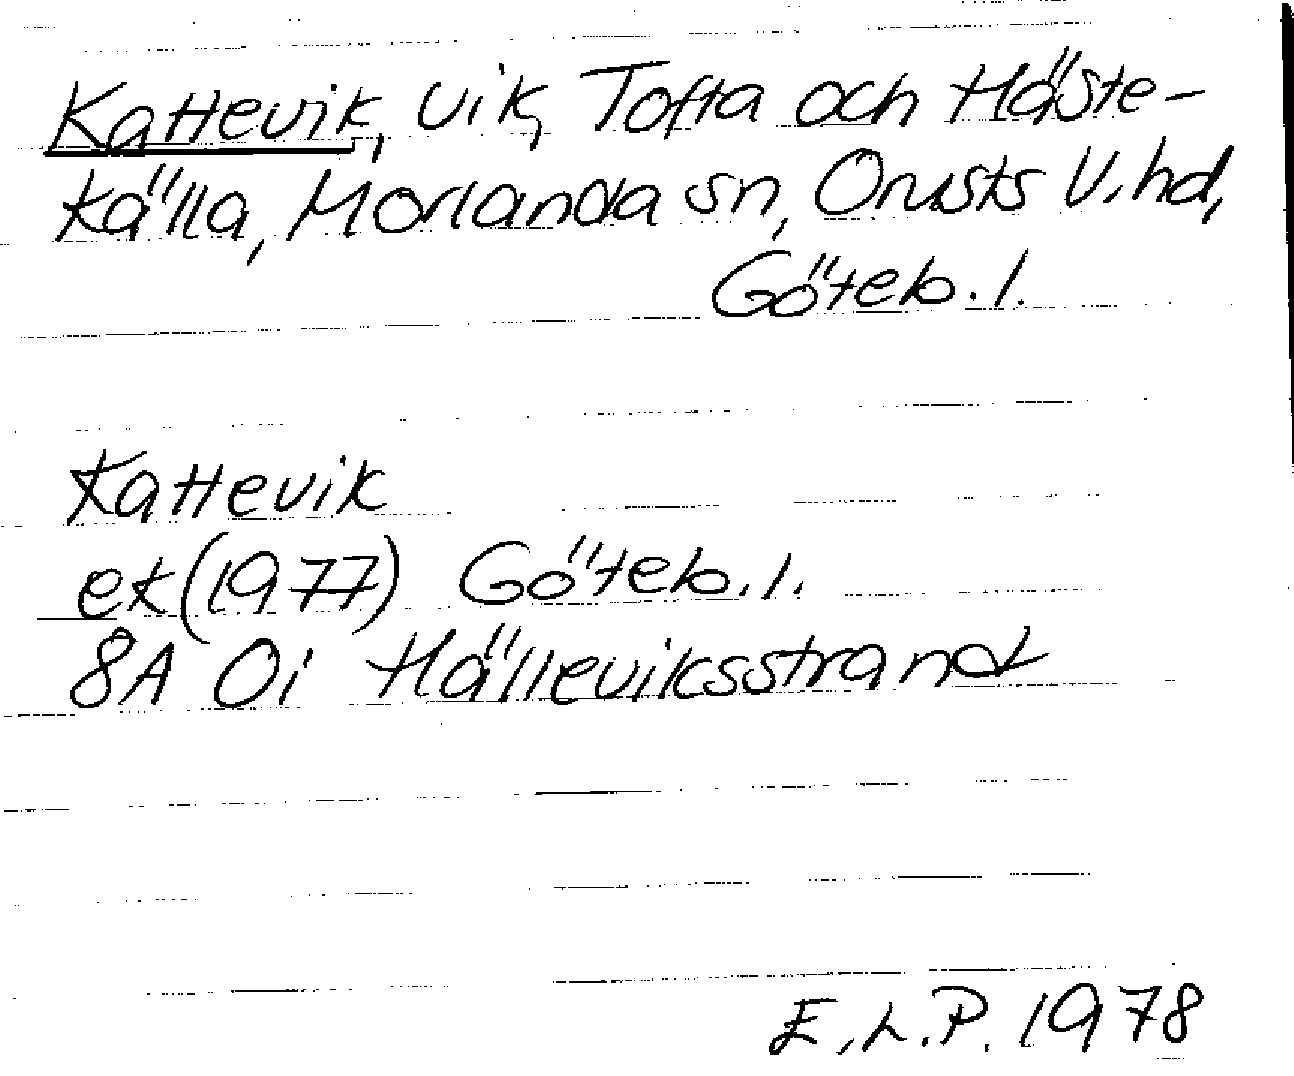 Kattevik, Vik, Tofta och Häste-
källa, Morlanda sn, Orusts V. hd,
Göteb. l.
Kattevik
ek (1977) Göteb. l.
8A 0i Hälleviksstrand
E.L.P. 1978